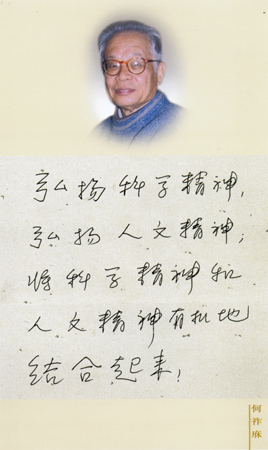 弘扬科学精神，
弘扬人文精神；
将科学精神和
人文精神有机地
结合起来！
何祚庥